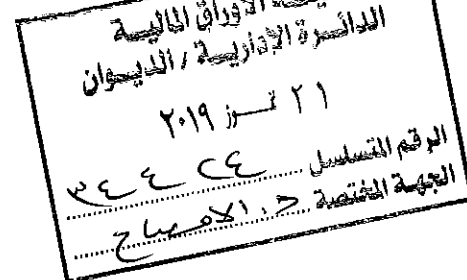 الأوراق المالية
الدائرة الإدارية / الديوان
٢١ تموز ٢٠١٩
الرقم المتسلسل ٣٤٤٢٤
الجهة المختصة د. الافصاح